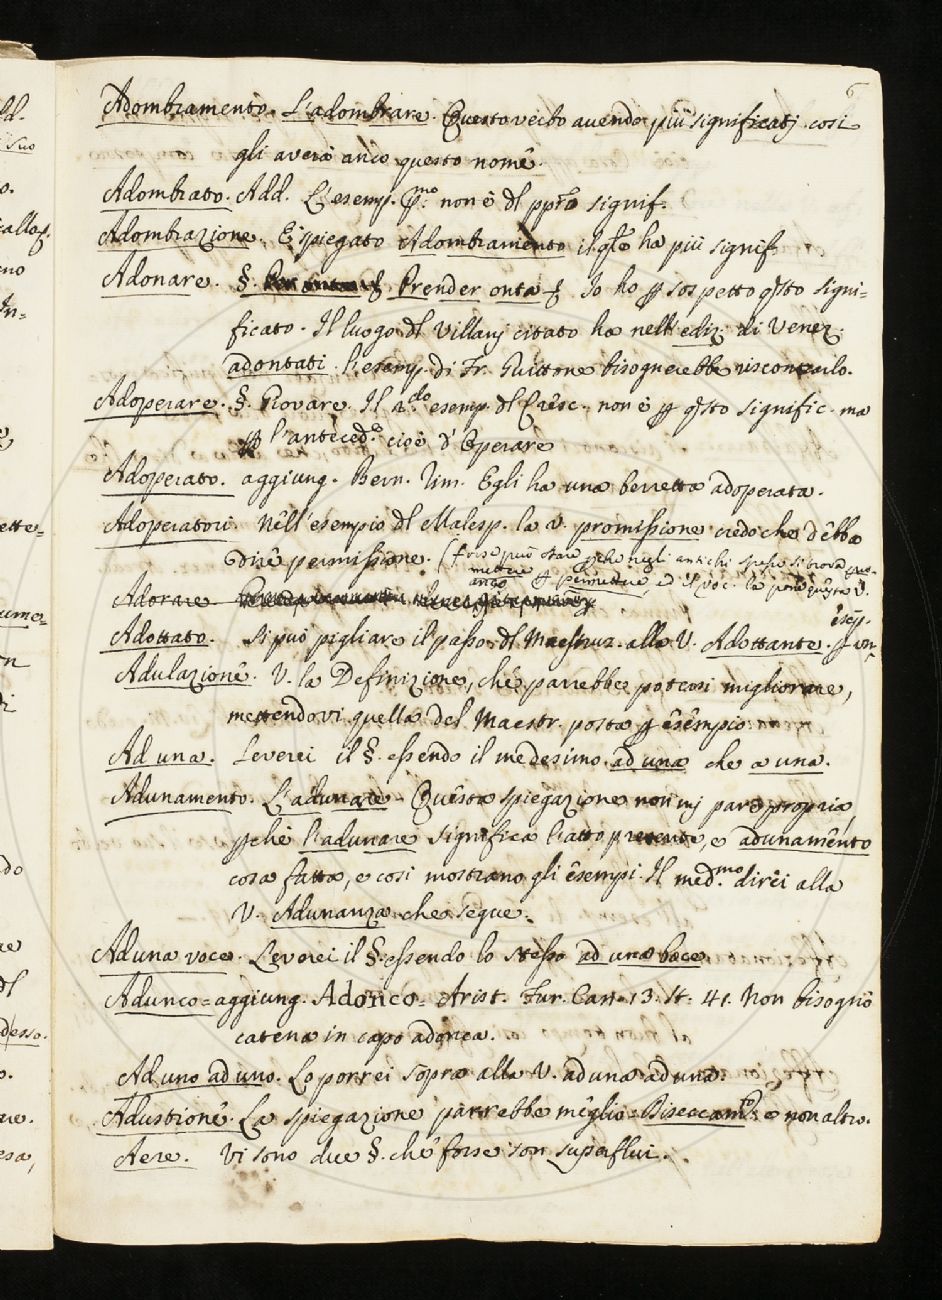 6
Adombramento. L'adombrare. Questo verbo avendo più significatj cosi
gli averà anco questo nome.
Adombrato. Add. L'esemp. pmo: non è dl pprio signif.
Adombrazione. E' spiegato Adombramento il qle ha più signif
Adonare. §. Prender onta Io ho p sospetto qsto signi=
ficato. Il luogo dl Villanj citato ha nell'ediz. di Venez.
adontati. L'esemp. di Fr. Guittone bisognerebbe riscontrarlo.
Adoperare. §. Giovare. Il 2.do esemp. dl Cresc. non è p qsto signific. ma
p l'anteced.e cioè d'Operare
Adoperato. aggiung. Bern. rim. Egli ha una berretta adoperata.
Adoperatori. Nell'esempio dl Malesp. la v. promissione credo che debba
dire permissione. (forse può stare pche negli antichi spesso si trova pro-
mettere p permettere, ed il Voc. la pone questa V.
anco
Adorare
esemp.
Adottato. Si può pigliare il passo dl Maestruz. alla V. Adottante. p un
Adulazione. V. la Definizione, che parrebbe potersi migliorare,
mettendovi quella del Maestr. posta p esempio.
Ad una. Leverei il §. essendo il medesimo ad una che a una.
Adunamento. L'adunare. Questa spiegazione non mj pare propria,
pchè l'adunare significa l'atto presente, e adunamento
cosa fatta, e cosi mostrano gli esempi. Il med.mo direi alla
V. Adunanza che segue.
Ad una voce. Leverei il §. essendo lo stesso ad una boce.
Adunco= aggiung. Adonco= Arist. Fur. Can. 13. st. 41. Non bisognò
catena in capo adonca.
Ad uno ad uno. Lo porrei sopra alla V. ad una ad una.
Adustione. La spiegazione parrebbe meglio= Diseccam.to e non altro.
Aere. Vi sono due §. che forse son superflui.